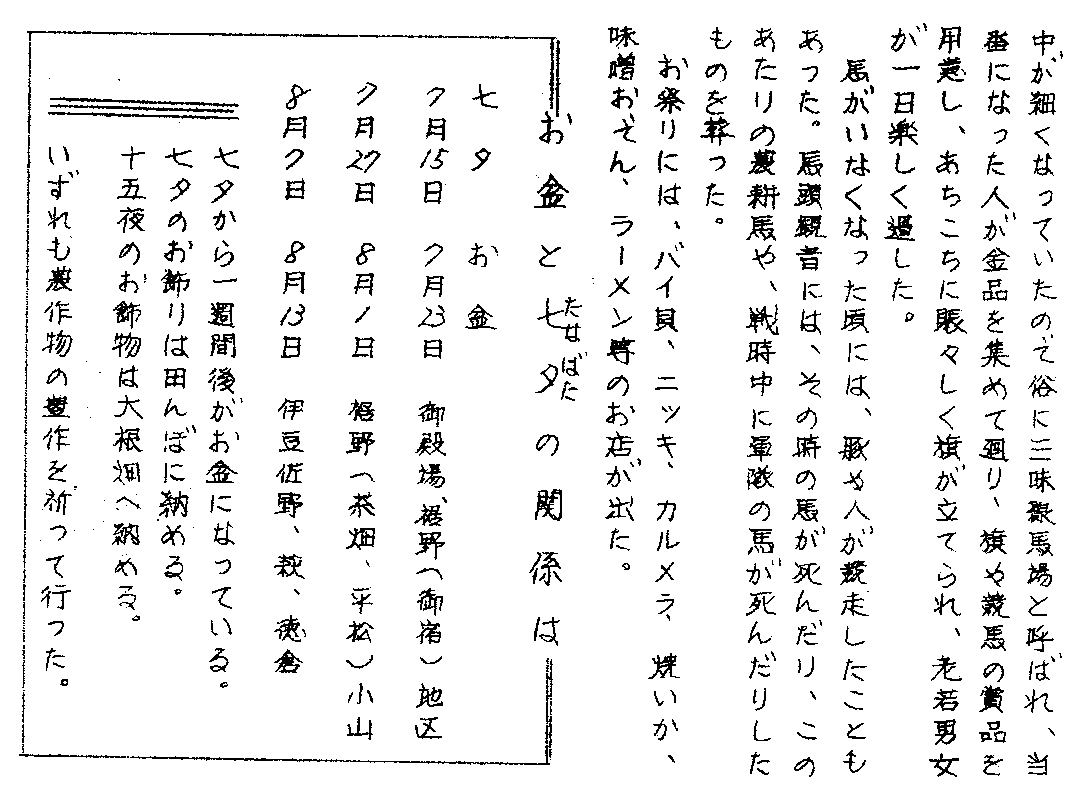 中が細くなっていたので俗に三味線馬場と呼ばれ、当
番になった人が金品を集めて廻り、旗や競馬の賞品を
用意し、あちこちに賑々しく旗が立てられ、老若男女
が一日楽しく過した。
馬がいなくなった頃には、豚や人が競走したことも
あった。馬頭観音には、その時の馬が死んだり、この
あたりの農耕馬や、戦時中に軍隊の馬が死んだりした
ものを葬った。
お祭りには、バイ貝、ニッキ、カルメラ、焼いか、
味噌おでん、ラーメン等のお店が出た。
お盆と七夕の関係は
たなばた
七夕 お盆
7月15日 7月23日 御殿場、裾野(御宿)地区
7月27日 8月1日 裾野(茶畑、平松)小山
8月7日 8月13日 伊豆佐野、萩、徳倉
七夕から一週間後がお盆になっている。
七夕のお飾りは田んぼに納める。
十五夜のお飾物は大根畑へ納める。
いずれも農作物の豊作を祈って行った。